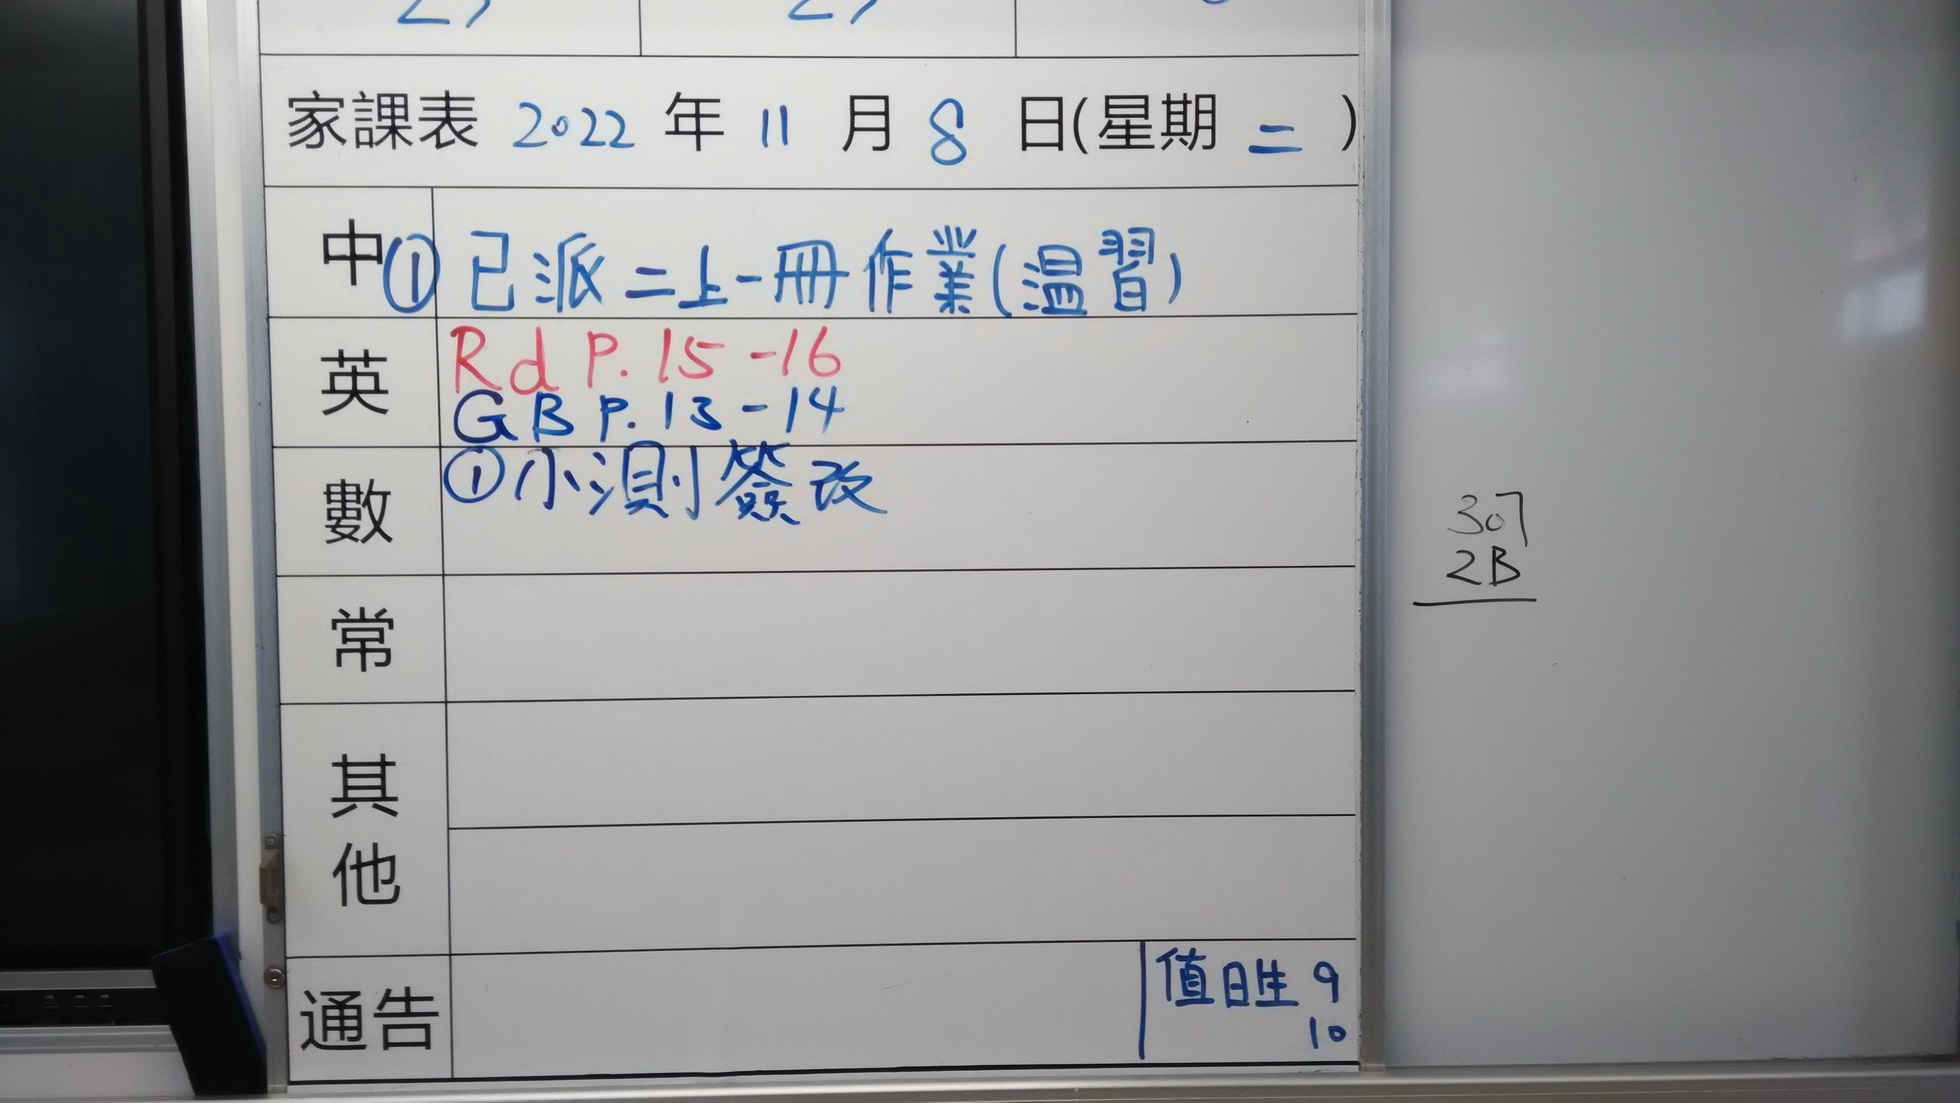 家課表 2022 年 11 月 8 日(星期 二 )
中 ① 已派二上一冊作業(温習)
英 Rd P. 15 -16
GB P. 13 -14
數 ①小測簽改
常
其他
通告
值日生 9
10
307
2B